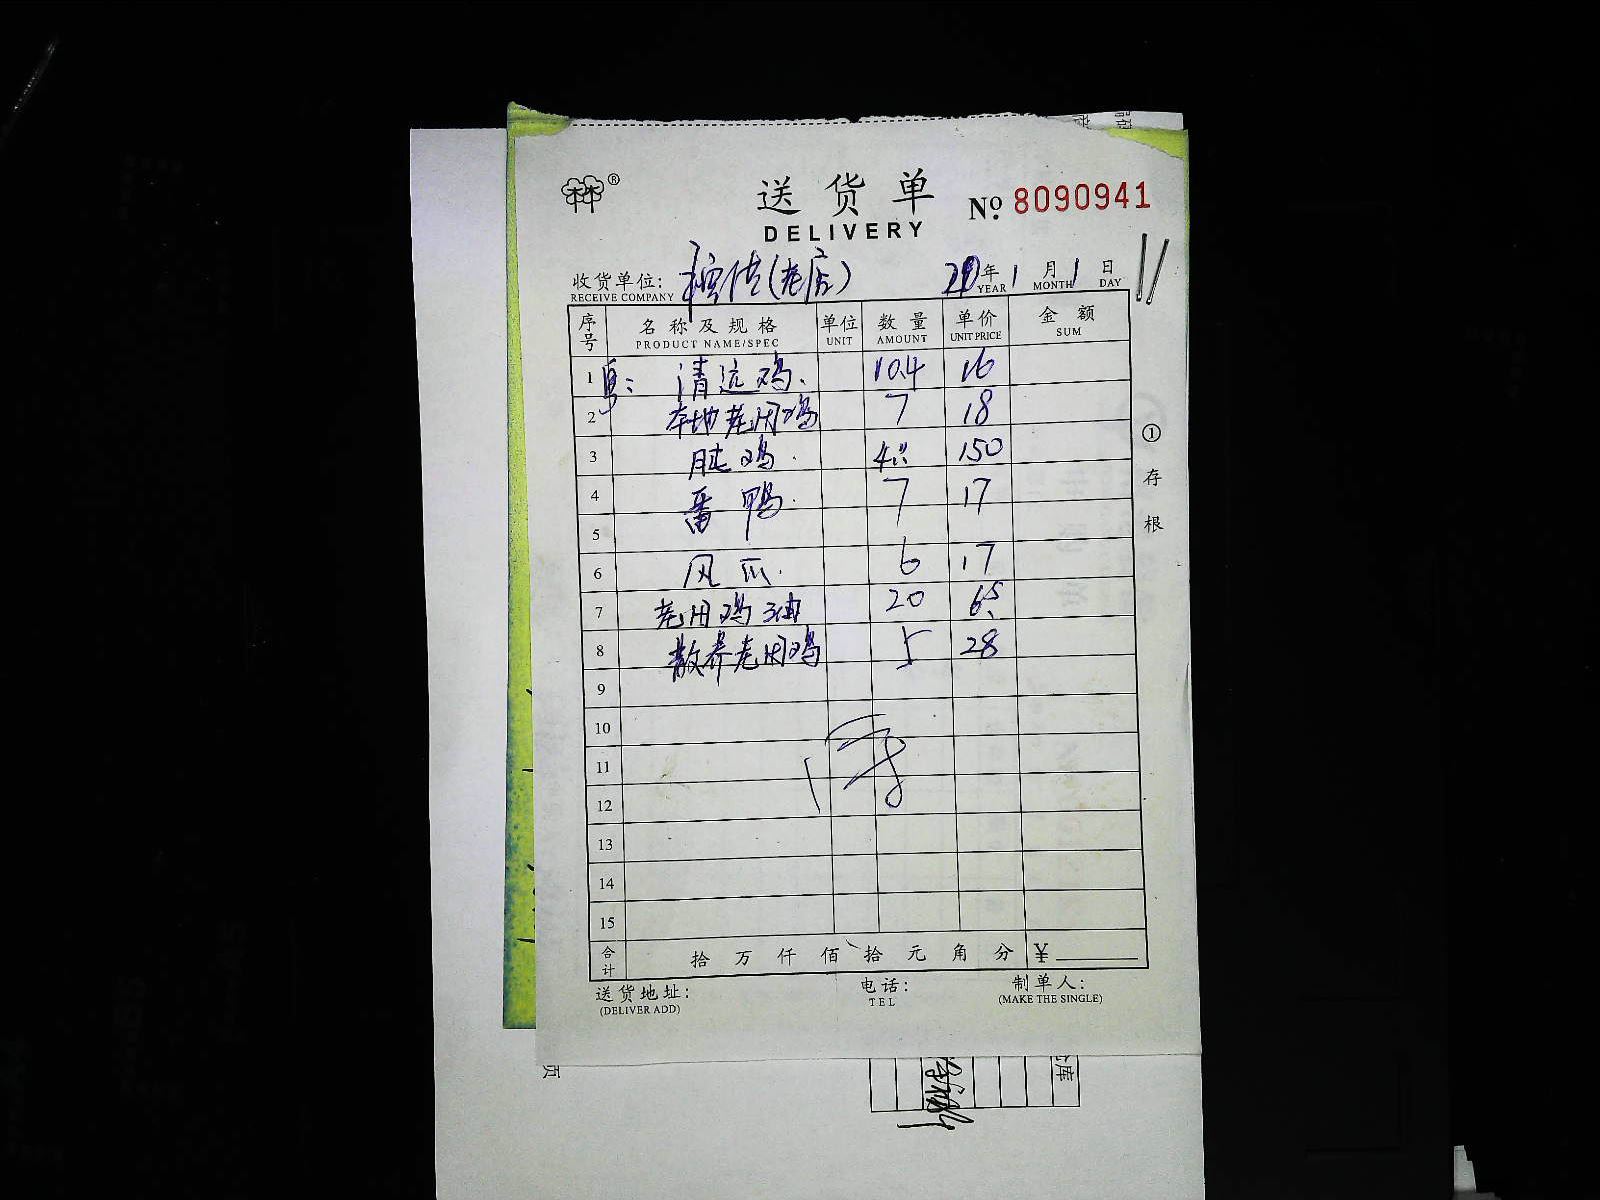 林®
送货单
№ 8090941
DELIVERY
收货单位: (老店) 年 1 月 1 日
RECEIVE COMPANY YEAR MONTH DAY
序号 名称及规格 单位 数量 单价 金额
PRODUCT NAME/SPEC UNIT AMOUNT UNIT PRICE SUM
1 清远鸡. 10.4 16
2 本地老用鸡 7 18
3 肫鸡. 150
4 番鸭. 7 17
5
6 风爪. 6 17
7 老用鸡油 20 6.5
8 散养老用鸡 5 28
9
10
11
12
13
14
15
合计 拾 万 仟 佰 拾 元 角 分 ¥
送货地址: 电话: 制单人:
(DELIVER ADD) TEL (MAKE THE SINGLE)
①存根
页
库